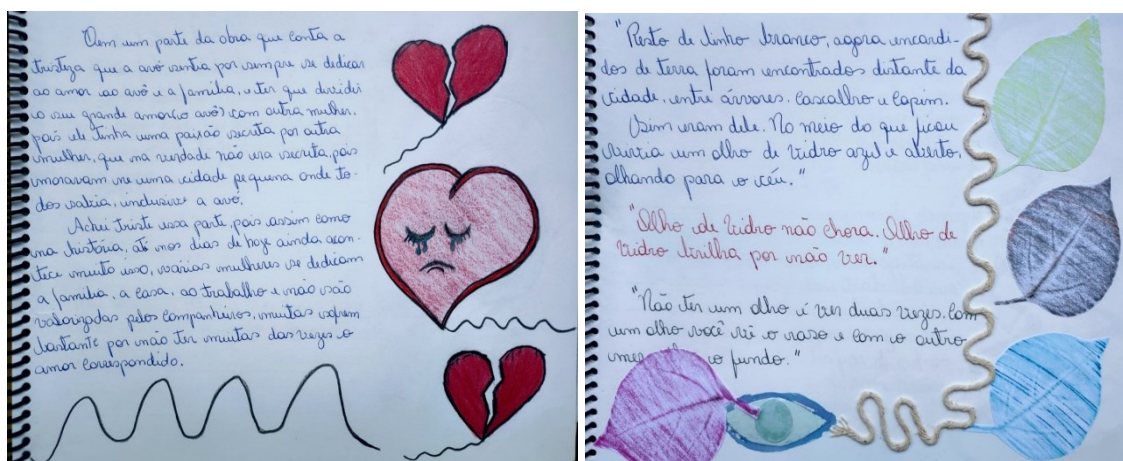 Tem um parte da obra que conta a
tristeza que a avó sentia por sempre se dedicar
ao amor ao avô e a família, e ter que dividir
(o seu grande amor(o avô) com outra mulher,
pois ele tinha uma paixão secreta por outra
mulher, que na verdade não era secreta, pois
moravam em uma cidade pequena onde to-
dos sabia, inclusive a avó.
Achei triste essa parte, pois assim como
na história, até nos dias de hoje ainda acon-
tece muito isso, várias mulheres se dedicam
a família, a casa, ao trabalho e não são
valorizadas pelos companheiros, muitas sofrem
bastante por não ter muitas das vezes o
amor correspondido.
"Resto de linho branco, agora encardi-
dos de terra foram encontrados distante da
cidade, entre árvores, cascalho e capim.
Sim eram dele. No meio do que ficou
havia um olho de vidro azul e aberto,
olhando para o céu."
"Olho de vidro não chora. Olho de
vidro brilha por não ver."
"Não ter um olho é ver duas vezes. Com
um olho você vê o raso e com o outro
o fundo."